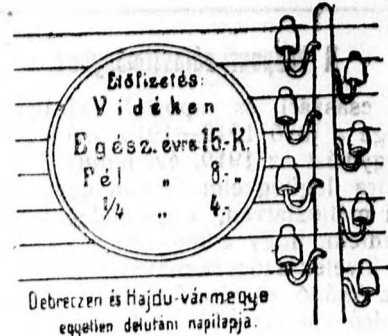 Előfizetés:
Vidéken
Egész. évre 15.-K.
Fél „ 8.-
1/4 „ 4.-
Debreczen és Hajdu-vármegye
egyetlen délutáni napilapja.